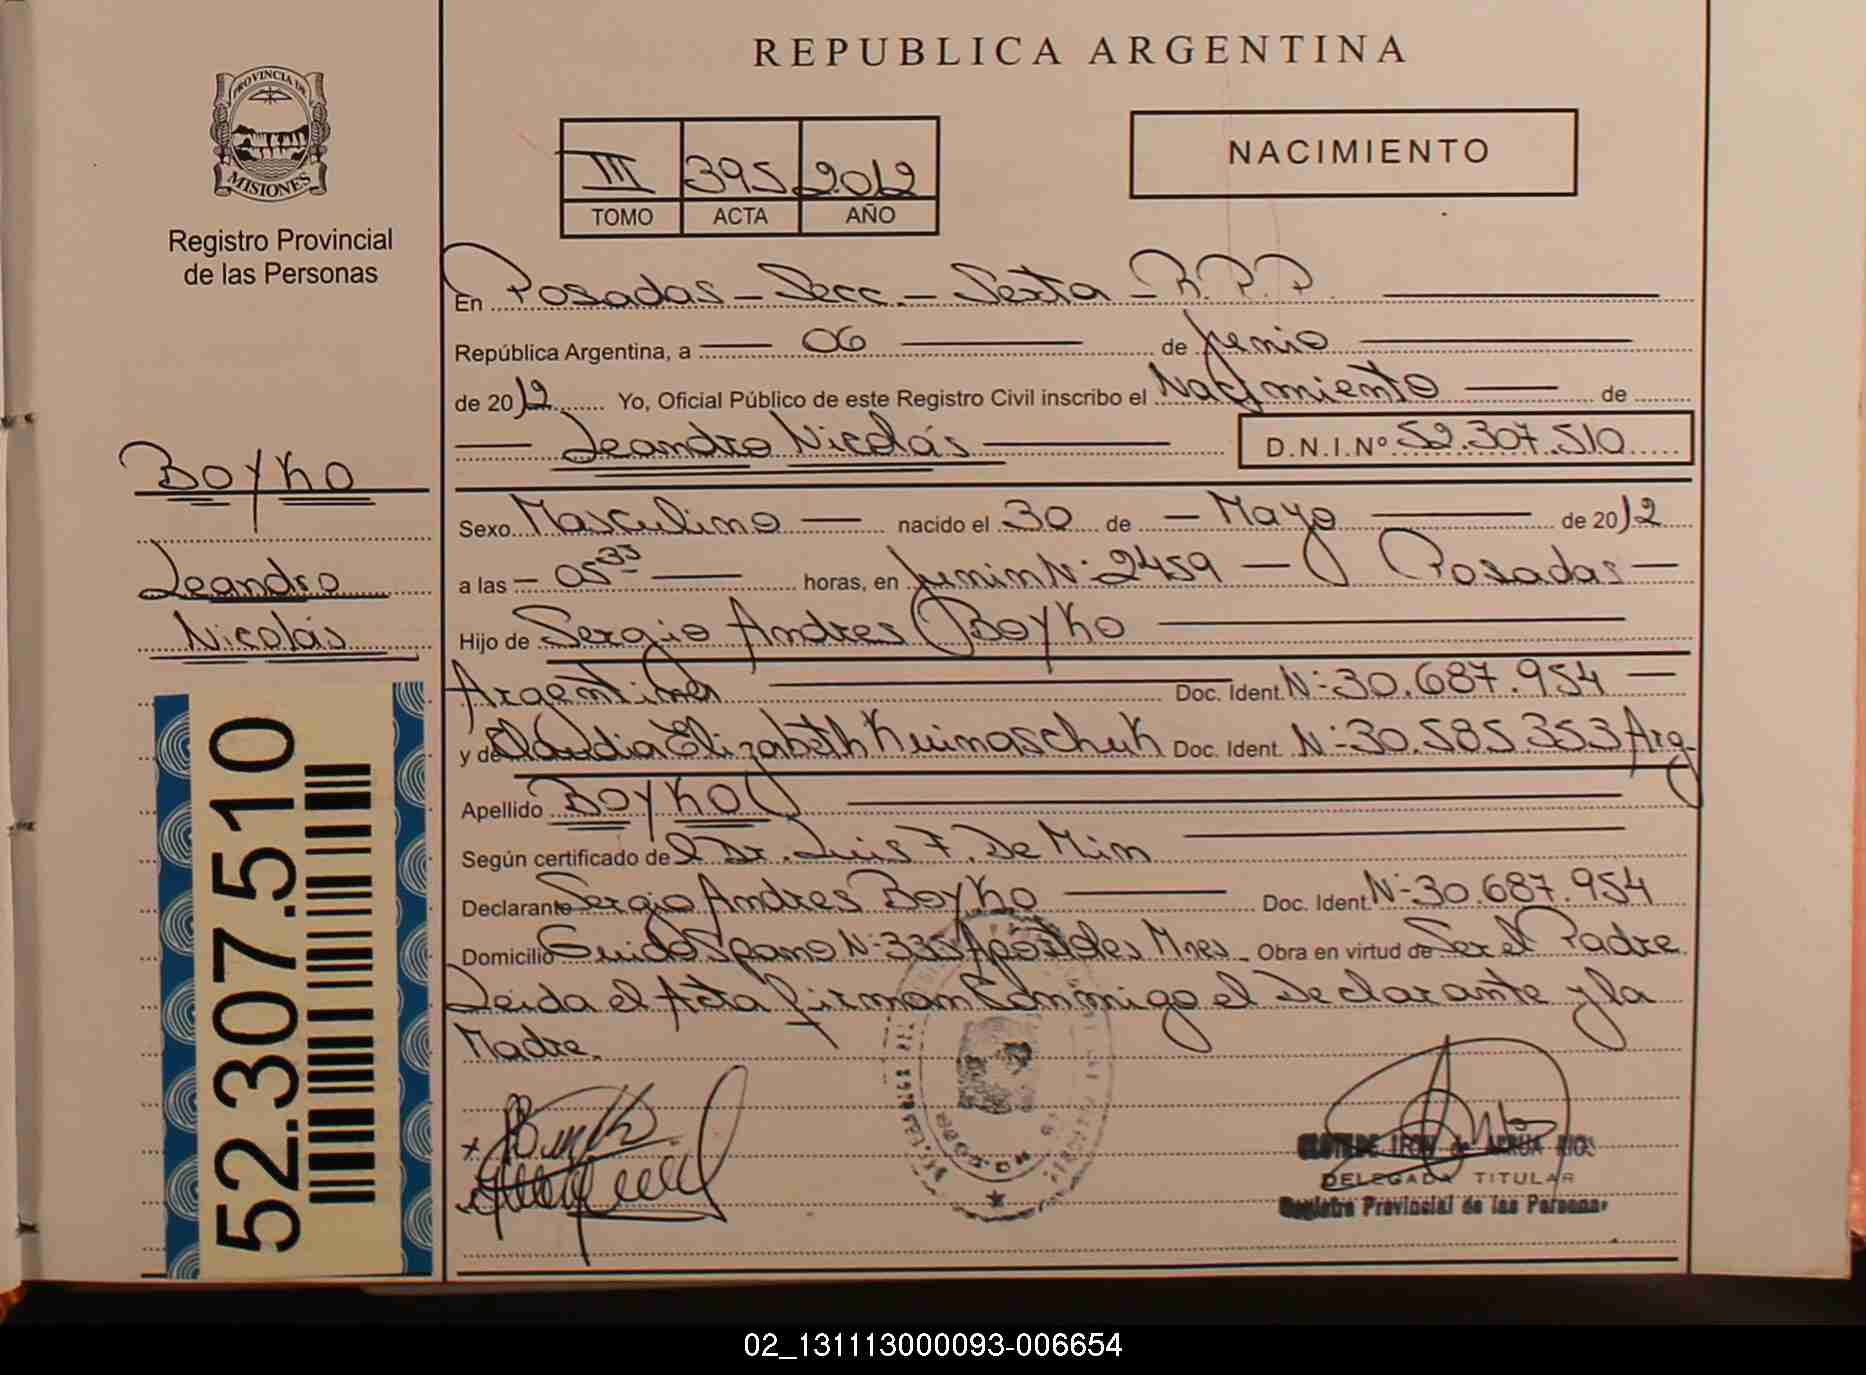 PROVINCIA DE
MISIONES
Registro Provincial
de las Personas
Boyko
Leandro
Nicolás
52.307.510
REPUBLICA ARGENTINA
III 395 2012
TOMO ACTA AÑO
NACIMIENTO
En Posadas - Secc. - Sexta - R.P.P.
República Argentina, a 06 de Junio
de 2012 Yo, Oficial Público de este Registro Civil inscribo el Nacimiento de
Leandro Nicolás D.N.I.Nº 52.307.510
Sexo Masculino nacido el 30 de - Mayo de 2012
a las - 05 35 horas, en Junin Nº 2459 - Posadas -
Hijo de Sergio Andres Boyko
Argentina Doc. Ident. Nº 30.687.954
y de Claudia Elizabeth Kuinaschuk Doc. Ident. Nº 30.585.353 Arg-
Apellido Boyko
Según certificado de el Dr. Luis F. De Min
Declarante Sergio Andres Boyko Doc. Ident. Nº 30.687.954
Domicilio Guido Spano Nº 335 Apostoles Mnes Obra en virtud de Ser el Padre
Leida el Acta firman Conmigo el Declarante y la
Madre.
DELEGADA TITULAR
Registro Provincial de las Personas
02_131113000093-006654